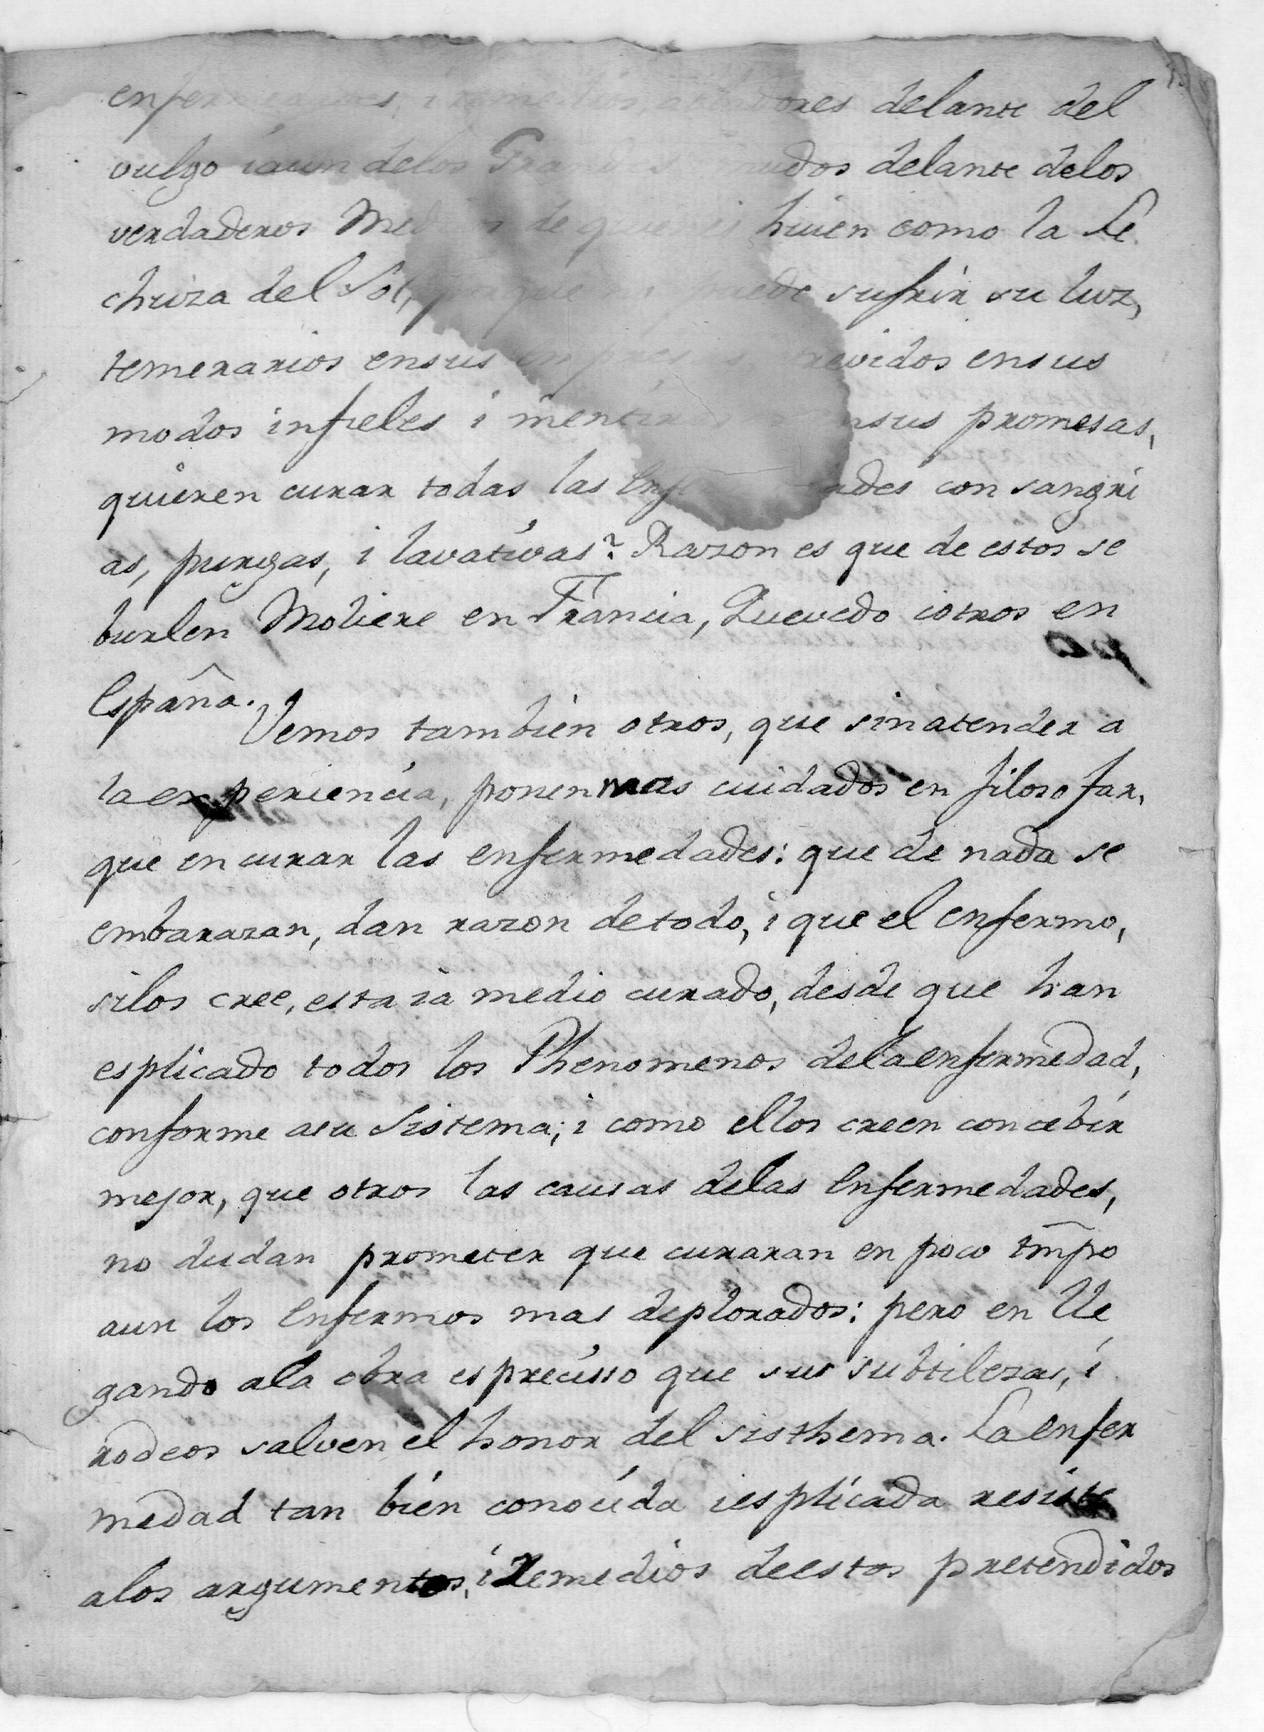 delante del
vulgo iaun delos mudos delante delos
verdaderos de huien como la Le
chuza del Sol, sufrir su luz,
temerarios ensus ensus
modos infieles i ensus promesas,
quieren curar todas las con sangri
as, purgas, i lavativas? Razon es que de estos se
burlen Moliere en Francia, Quevedo iotros en
España.
Vemos tambien otros, que sinatender a
laexperiencia, ponenmas cuidados en filosofar,
que en curar las enfermedades: que de nada se
embarazan, dan razon detodo, i que el enfermo,
silos cree, esta ia medio curado, desde que han
esplicado todos los Phenomenos delaenfermedad,
conforme asu Sistema; i como ellos creen concebir
mejor, que otros las causas delas Enfermedades,
no dudan prometer que curaran en poco tmpo
aun los Enfermos mas deplorados: pero en lle
gando ala obra es precisso que sus subtilezas, i
rodeos salven el honor del sisthema. La Enfer
medad tan bien conocida iesplicada resiste
alos argumentos, i Remedios deestos pretendidos